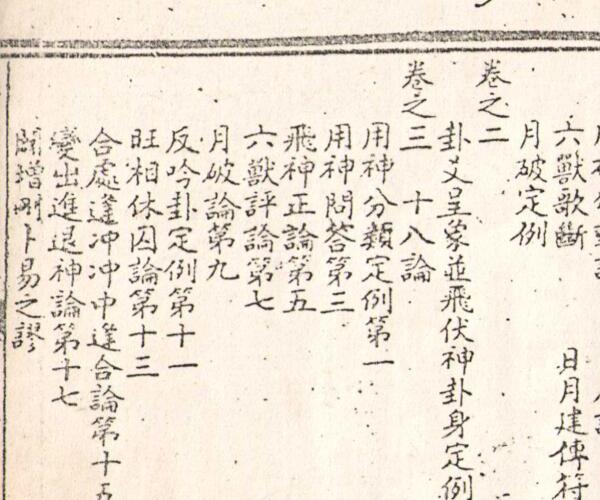 六獸歌斷 日月建傳符
月破定例
卷之二
卦爻呈象並飛伏神卦身定例
卷之三 十八論
用神分類定例第一
用神問答第三
飛神正論第五
六獸評論第七
月破論第九
反吟卦定例第十一
旺相休囚論第十三
合處逢冲冲中逢合論第十五
變出進退神論第十七
闢增刪卜易之謬